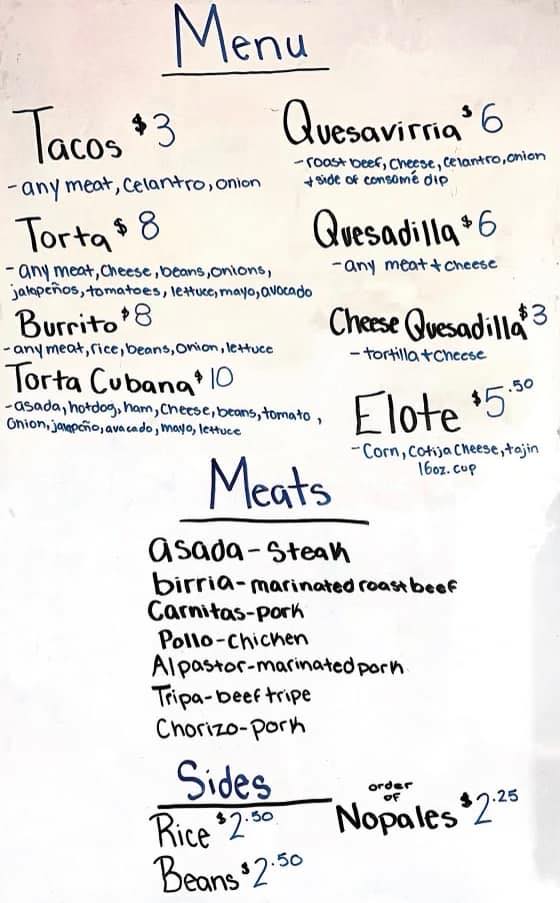 Menu
Tacos $3
-any meat, celantro, onion
Torta $8
-any meat, cheese, beans, onions,
jalapeños, tomatoes, lettuce, mayo, avocado
Burrito $8
-any meat, rice, beans, onion, lettuce
Torta Cubana $10
-asada, hotdog, ham, cheese, beans, tomato,
onion, jalapeño, avacado, mayo, lettuce
Quesavirria $6
-roast beef, cheese, celantro, onion
+ side of consomé dip
Quesadilla $6
-any meat + cheese
Cheese Quesadilla $3
-tortilla + cheese
Elote $5.50
-Corn, Cotija cheese, tajin
16oz. cup
Meats
asada-Steak
birria-marinated roast beef
Carnitas-pork
Pollo-chicken
Al pastor-marinated pork
Tripa-beef tripe
Chorizo-pork
Sides
Rice $2.50
Beans $2.50
order
of
Nopales $2.25